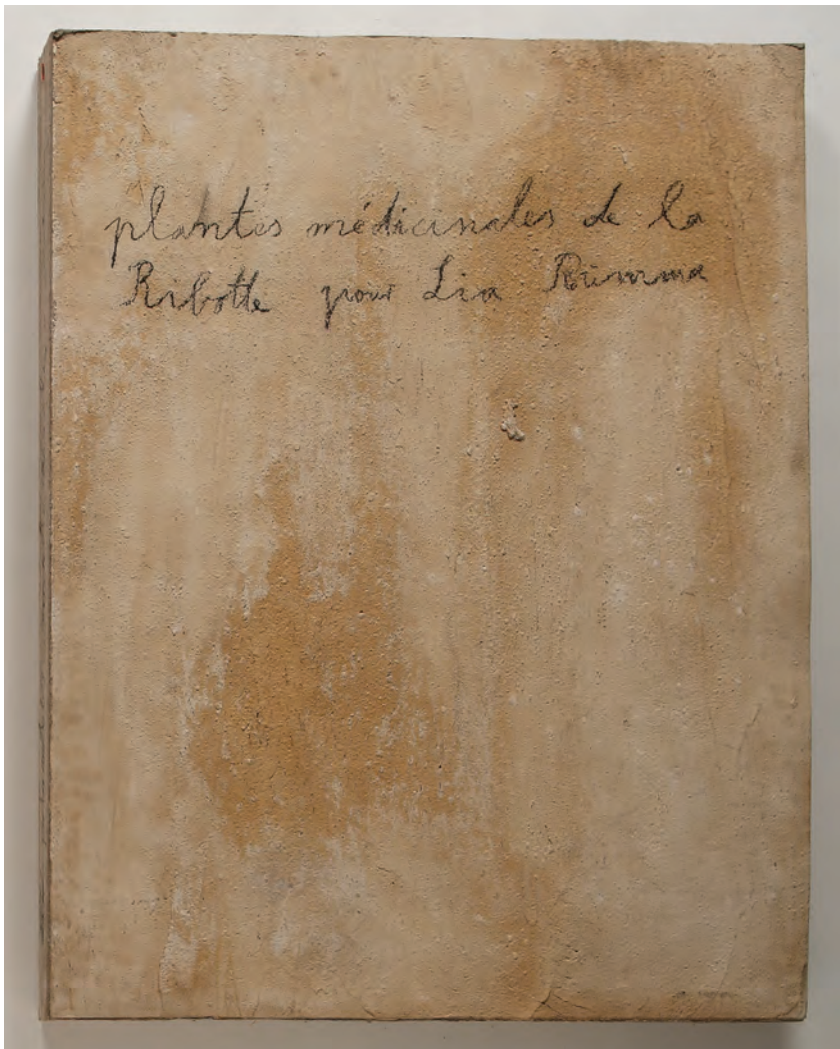 plantes médicinales de la
Ribotte pour Lia Rumma